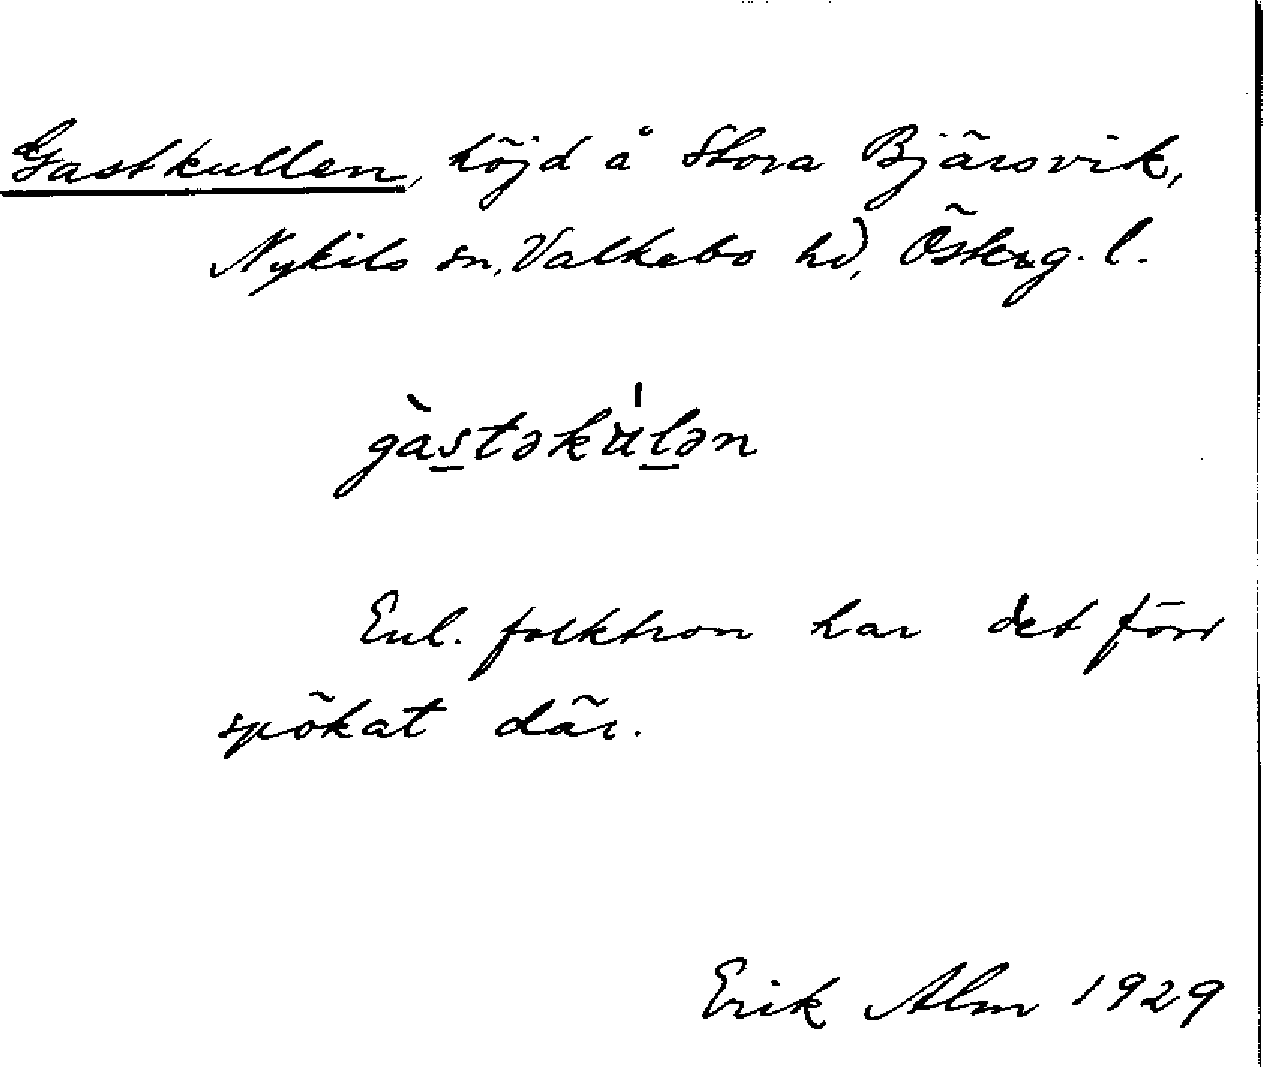 Gastkullen, höjd å Stora Bjärsvik,
Nykils sn, Valkebo hd, Österg. l.
gàstəkúlən
Enl. folktron har det förr
spökat där.
Erik Alm 1929